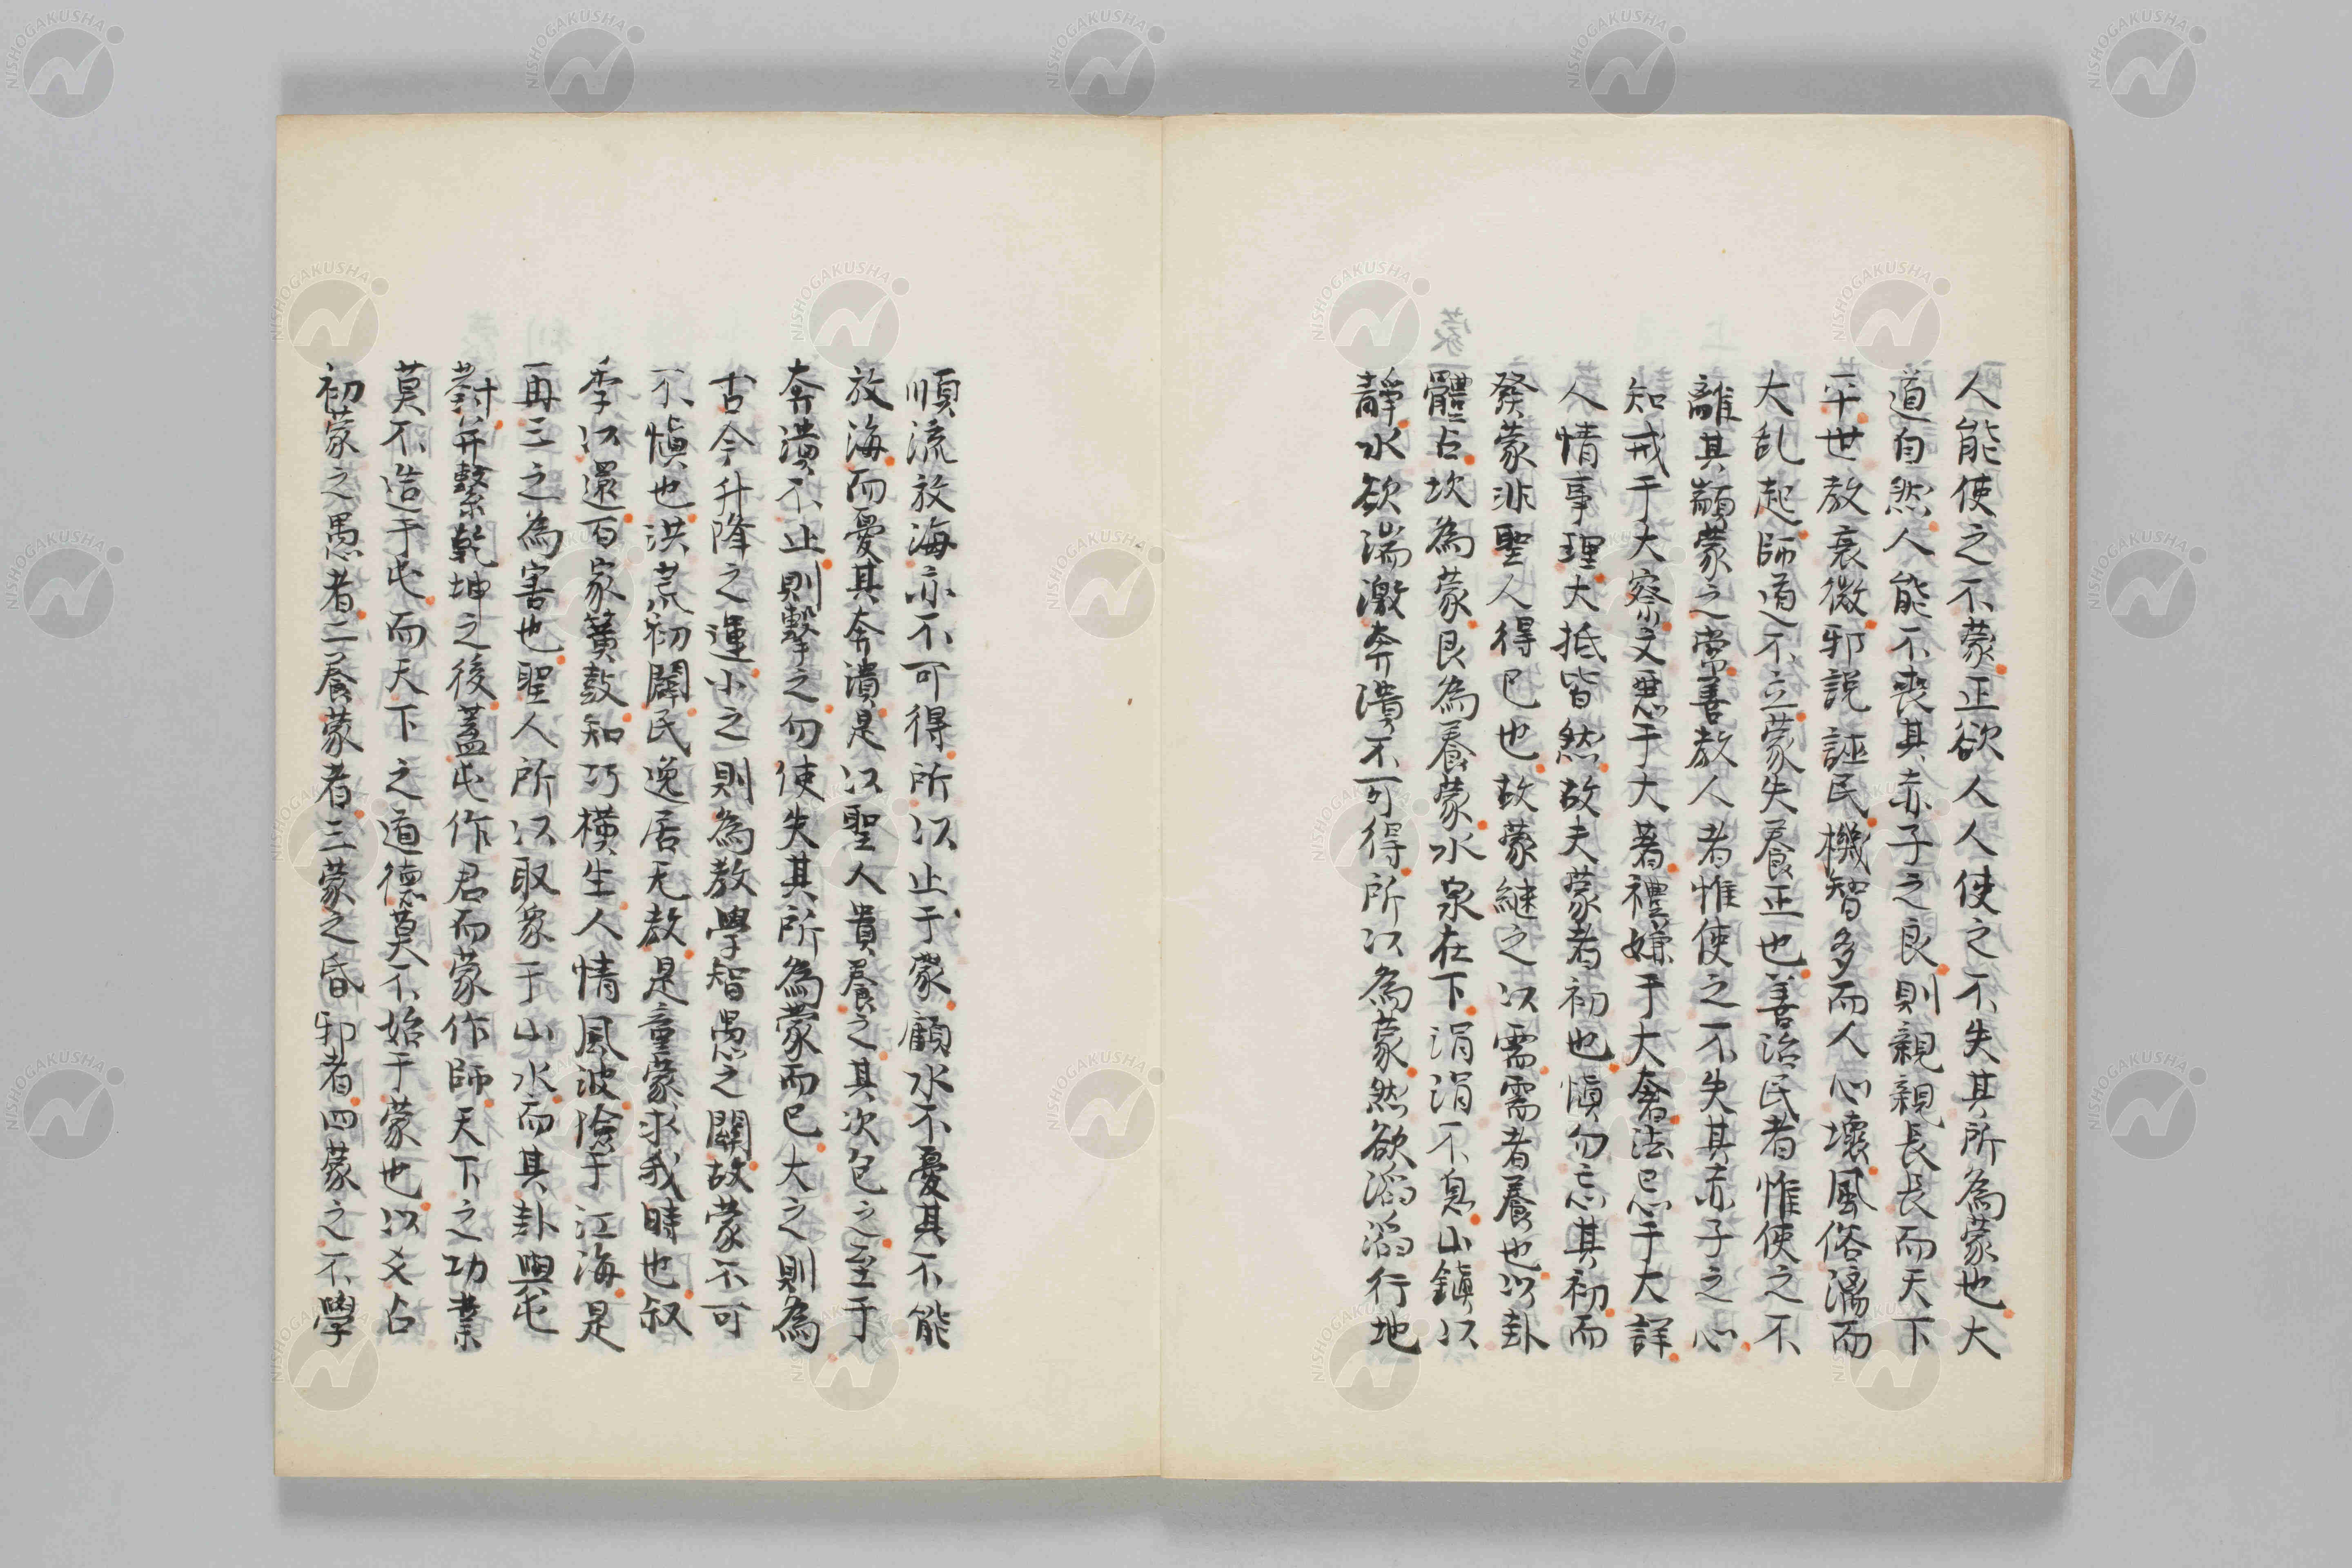 人能使之不蒙正欲人人使之不失其所為蒙也大
道自然人能不喪其赤子之良則親親長長而天下
平世教衰微邪説誣民機智多而人心壞風俗漓而
大乱起師道不立蒙失養正也善治民者惟使之不
離其顓蒙之常善教人者惟使之不失其赤子之心
知戒于大察文惡于大著禮嫌于大奢法忌于大詳
人情事理大抵皆然故夫蒙者初也慎勿忘其初而
發蒙非聖人得已也故蒙繼之以需需者養也以卦
體占坎為蒙艮為養蒙水泉在下涓涓不息山鎮以
靜水欲湍激奔潰不可得所以為蒙然欲滔滔行地
順流放海亦不可得所以止于蒙顧水不憂其不能
放海而憂其奔潰是以聖人貴養之其次包之至于
奔潰不止則擊之勿使失其所為蒙而已大之則為
古今升降之運小之則為教學智愚之關故蒙不可
不慎也洪荒初闢民逸居无教是童蒙求我時也叔
季以還百家簧鼓知巧橫生人情風波險于江海是
再三之為害也聖人所以取象于山水而其卦與屯
對并繫乾坤之後蓋屯作君而蒙作師天下之功業
莫不造于屯而天下之道德莫不始于蒙也以爻占
初蒙之愚者二養蒙者三蒙之昏邪者四蒙之不學
NISHOGAKUSHA